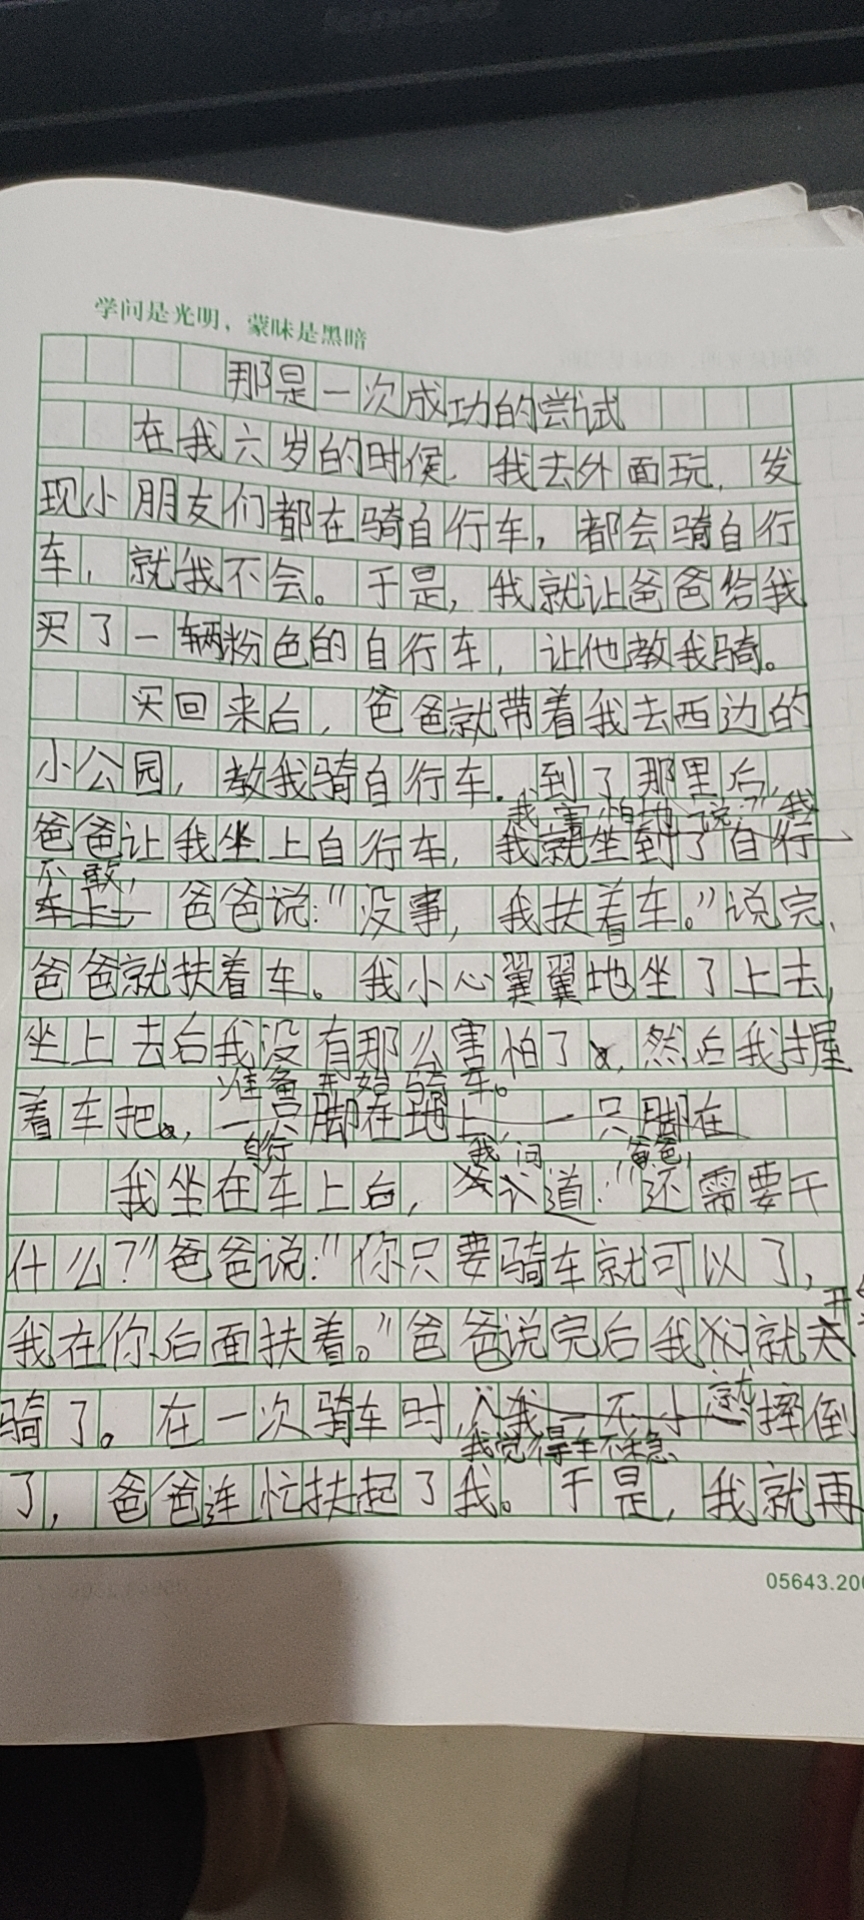 lenovo
学问是光明，蒙昧是黑暗
那是一次成功的尝试
在我六岁的时候，我去外面玩，发
现小朋友们都在骑自行车，都会骑自行
车，就我不会。于是，我就让爸爸给我
买了一辆粉色的自行车，让他教我骑。
买回来后，爸爸就带着我去西边的
小公园，教我骑自行车．到了那里后，
我害怕地说："我
爸爸让我坐上自行车，我就坐到了自行
不敢，
车上。爸爸说："没事，我扶着车。"说完，
爸爸就扶着车。我小心翼翼地坐了上去，
坐上去后我没有那么害怕了，然后我握
准备开始骑车。
着车把。，一只脚在地上，一只脚在
自行 我问 爸爸，
我坐在车上后，道："还需要干
什么？"爸爸说："你只要骑车就可以了，
开始
我在你后面扶着。"爸爸说完后我们就
骑了。在一次骑车时，我一不小就摔倒
我觉得车不稳，
了，爸爸连忙扶起了我。于是，我就再
05643.200